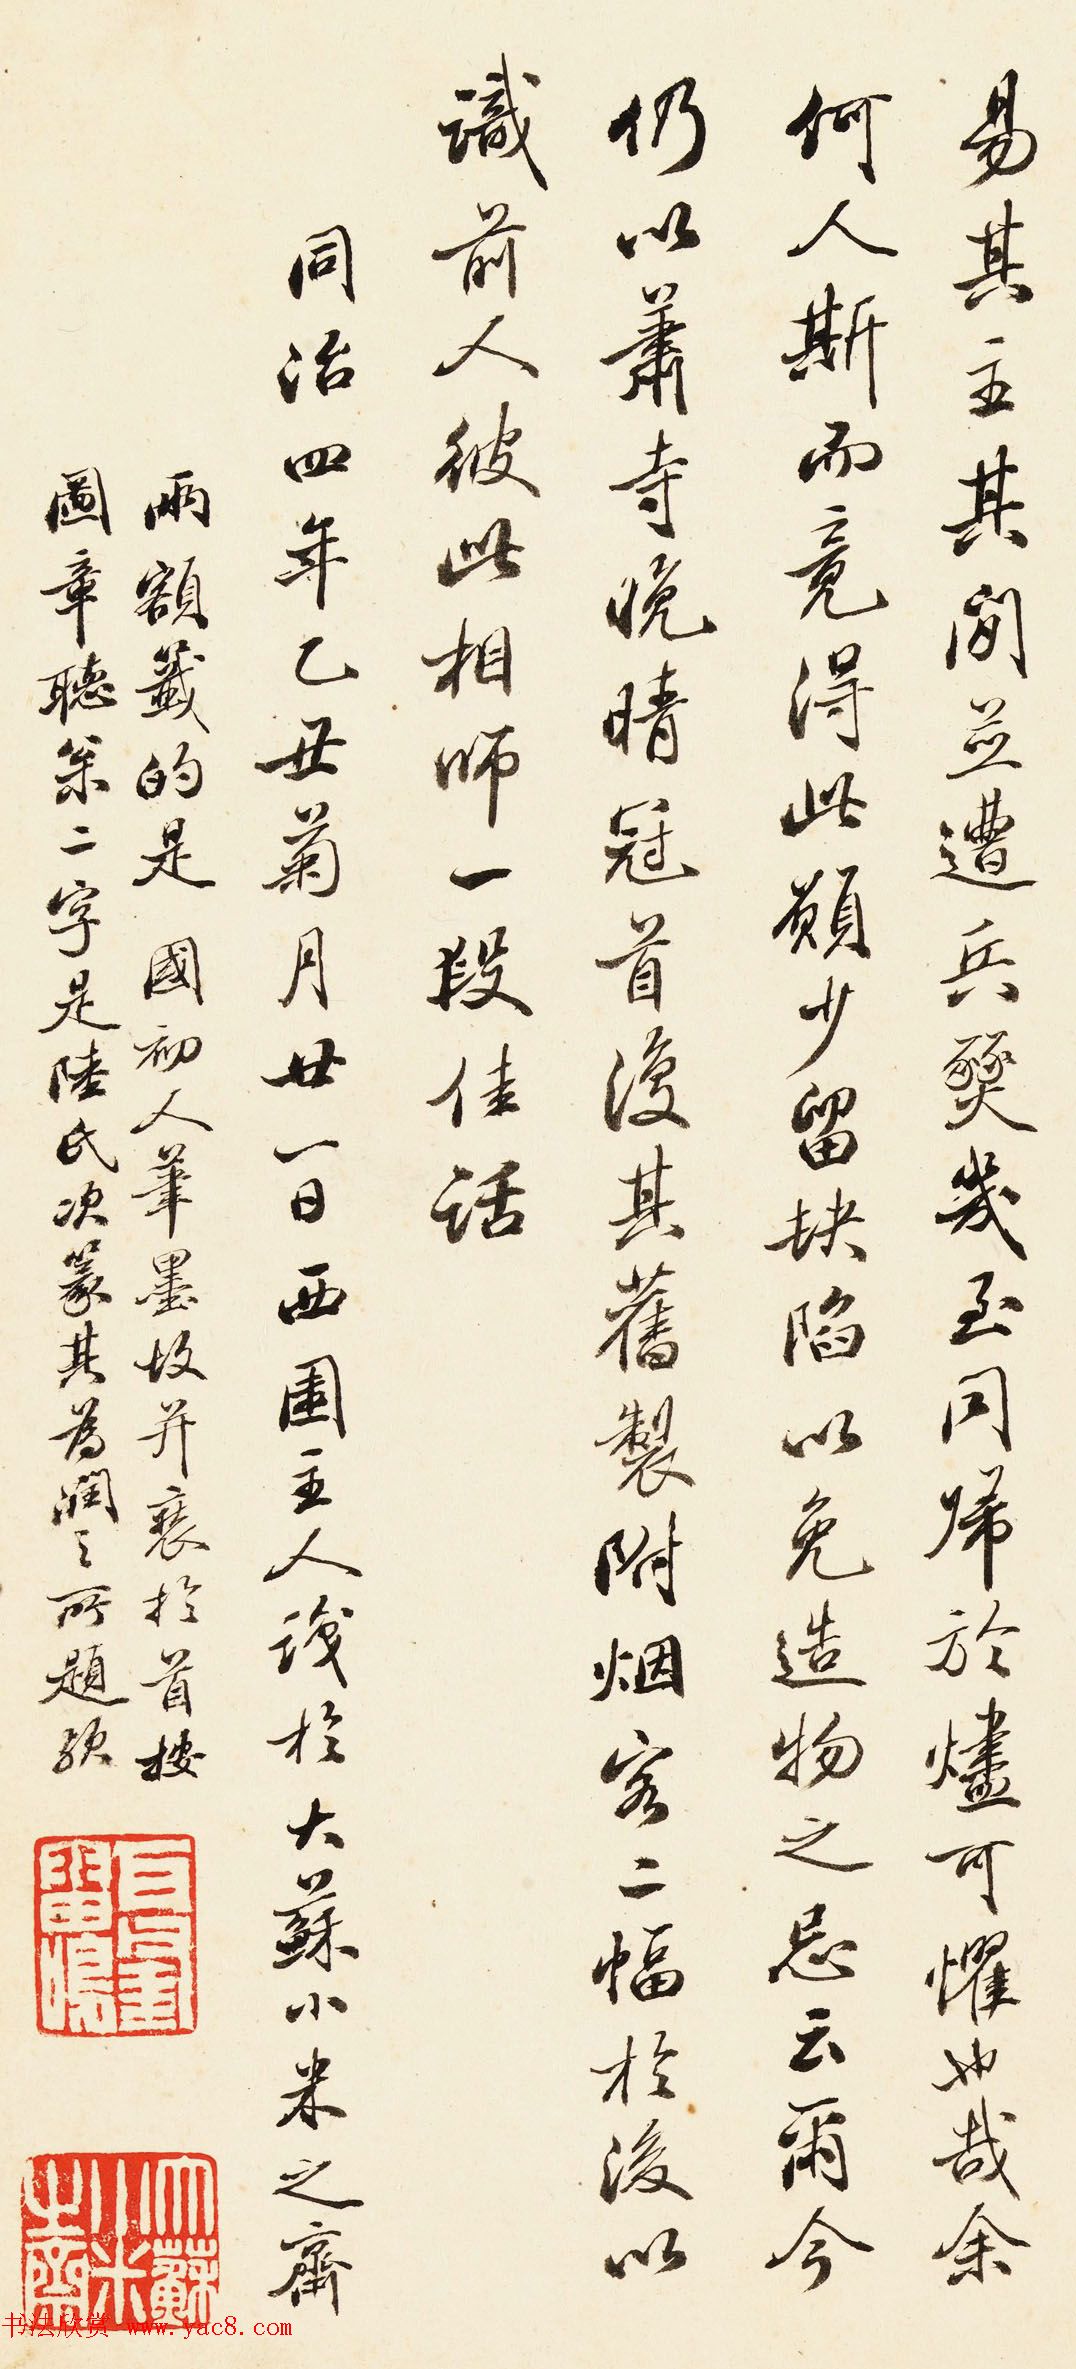 易其主其間並遭兵燹幾至同歸於燼可懼也哉余
何人斯而竟得此願少留缺陷以免造物之忌云爾今
仍以蕭寺晚晴冠首復其舊製附烟客二幅於後以
識前人彼此相師一段佳話
同治四年乙丑菊月廿一日西圃主人識於大蘇小米之齋
兩額籤的是 國初人筆墨故并裱於首按
圖章聽 二字是陸氏次篆其為潤之所題歟
大蘇小米之齋
书法欣赏 www.yac8.com